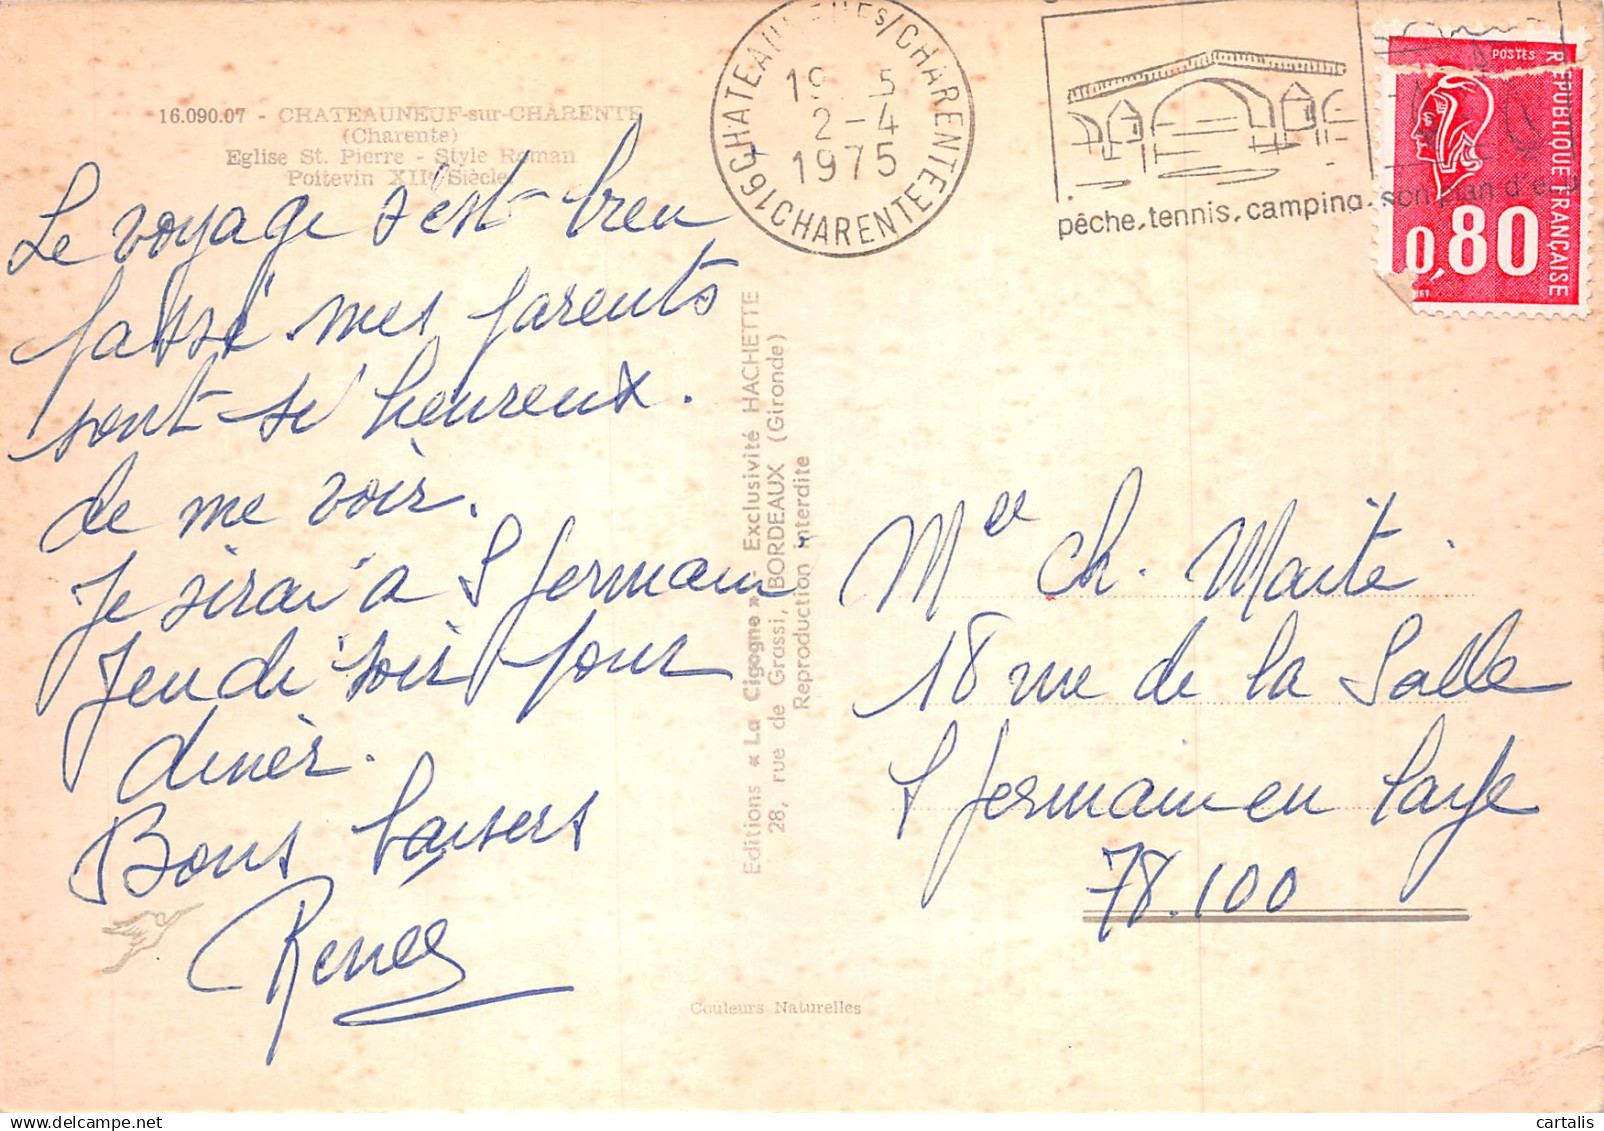 16.090.07 - CHATEAUNEUF-sur-CHARENTE
(Charente)
Eglise St. Pierre - Style Roman
Poitevin XIIe Siècle
Le voyage s'est bien
passé mes parents
sont si heureux.
de me voir.
Je serai à St Germain
Jeudi soir pour
diner.
Bons baisers
Renée
Editions « La Cigogne » - Exclusivité HACHETTE
28, rue de Grassi, BORDEAUX (Gironde)
Reproduction interdite
Couleurs Naturelles
16 CHATEAUNEUF S/CHARENTE
19 5
2-4
1975
CHARENTE
pêche. tennis. camping. son plan d'eau
POSTES
REPUBLIQUE FRANÇAISE
0,80
Mce Ch. Maité
18 rue de la Salle
St Germain en Laye
78.100
cartalis
delcampe.net